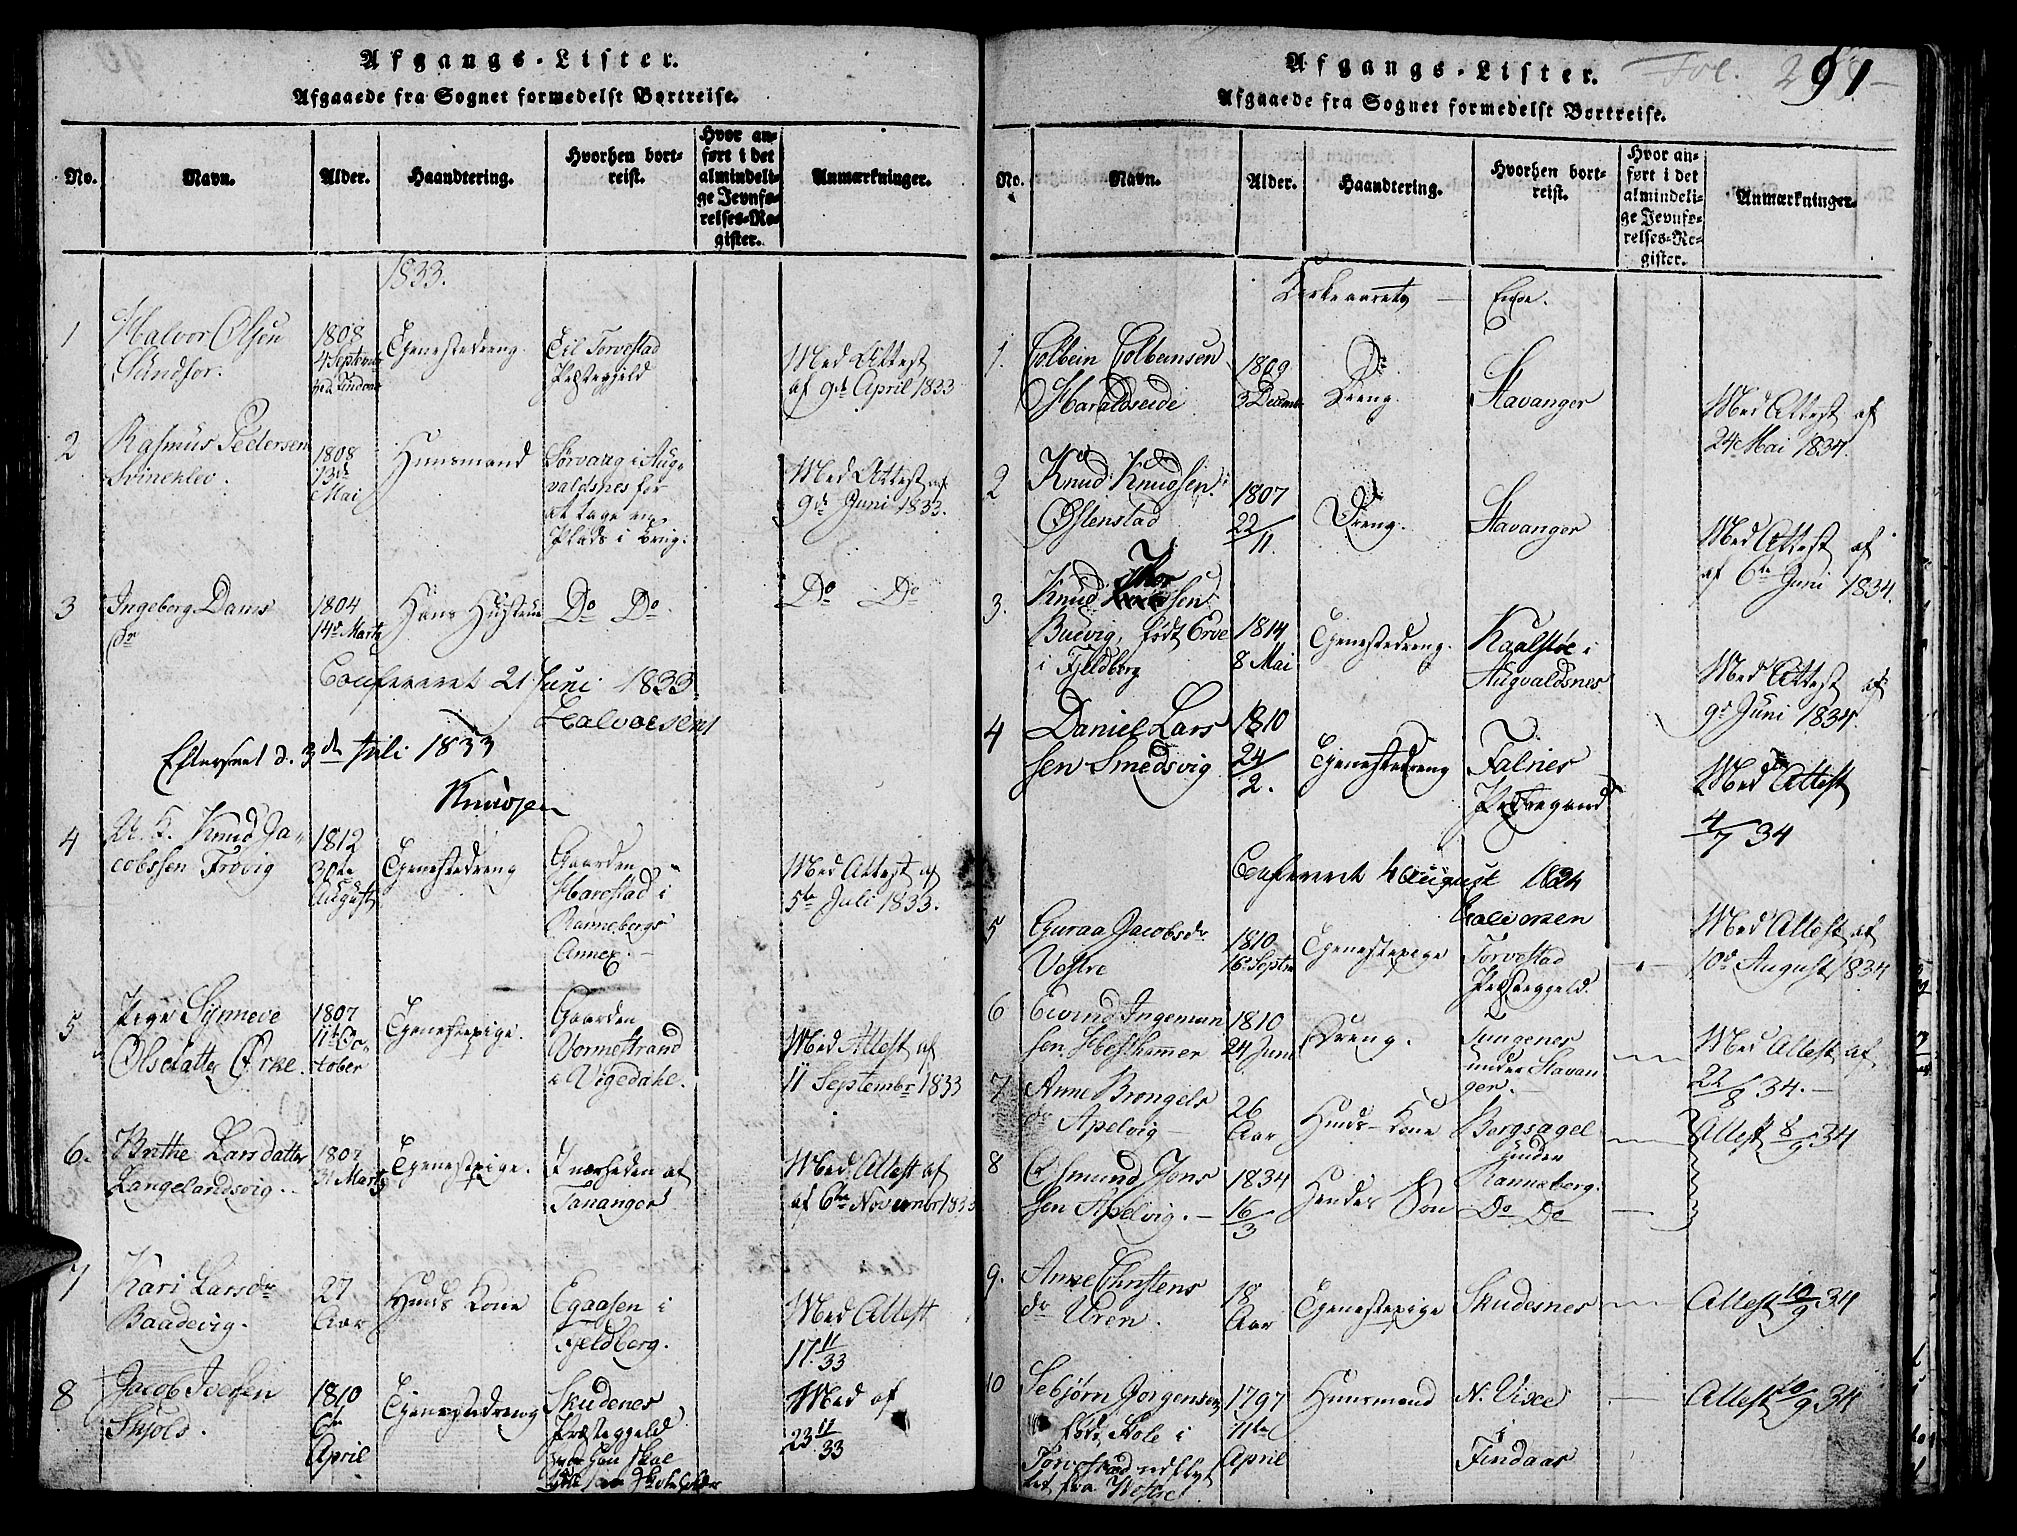 Afgangs-Lister.
Afgaaede fra Sognet formedelst Bortreise.
No.
Navn.
Alder.
Haandtering.
Hvorhen bort-
reist.
Hvor an-
ført i det
almindeli-
ge Jevnfø-
relses-Re-
gister.
Anmærkninger.
1833.
1
Halvor Olsen
Sundfor.
1808
4 September
Tjenestedreng
Til Torvestad
Præstegjeld
Med Attest
af 9de April 1833
2
Rasmus Pedersen
Svineklev.
1808
13de
Mai
Huusmand
i Aug-
valdsnes for
at tage en
Plads i brug.
Med Attest af
9de Juni 1833.
3
Ingeborg Dans
dr
1804
14de Marts
Hans Hustrue
Do Do
Do Do
Confereret 21 Juni 1833
Halvorsen
Efterseet d. 3de Juli 1833
Knudsen
4
U. K. Knud Ja-
cobssen Frøvig
1812
30te
August
Tjenestedreng
Gaarden
Harestad i
Rannebergs
Annex.
Med Attest af
5te Juli 1833.
5
Pige Synneve
Olsdatter Ørke.
1807
11te Oc-
tober
Tjenestepige.
Gaarden
Vormestrand
i Vigedahl.
Med Attest af
11 Septembr 1833
6.
Brithe Larsdatter
Langelandsvig.
1807
31 Marts
Tjenestepige.
I nærheden af
Tananger
Med Attest af
af 6te Novembr 1833
7
Kari Larsdr
Baadevig.
27
Aar
Huuds Kone
Egaasen i
Fjeldberg.
Med Attest
17 11/33
8
Jacob Iversen
Skjold.
1810
6te
April
Tjenestedreng
Skudenes
Præsteggeld
hvor han skal
Med af
23 11/33
Afgangs-Lister.
Fol. 2
91
Afgaaede fra Sognet formedelst Bortreise.
No.
Navn.
Alder.
Haandtering.
Hvorhen bort-
reist.
Hvor an-
ført i det
almindeli-
ge Jevnfø-
relses-Re-
gister.
Anmærkninger.
Kirkeaarets — Ende.
1.
Colbein Colbeinsen
Haraldseide
1809
3 Decembr
Do
Dreng.
Stavanger
Med Attest af
24 Mai 1834.
2
Knud Knudsen
Østenstad
1807
22/11
Dreng.
Stavanger
Med Attest af
af 6te Juni 1834.
3.
Knud Thorsen
Budvig, født Erve
i Fjeldberg
1814
8 Mai
Tjenestedreng.
Kaalstøe i
Augvaldsnes
Med Attest af
9de Juni 1834.
4
Daniel Lars
sen Smedsvig
1810
24/2.
Tjenestedreng
Falnes
Præstegaard
Med Attest
4/7 34
Confereret 4 August 1834
Halvorsen
5
Guraa Jacobsdr
Vostre
1810
16de Septbr
Tjenestepige
Torvestad
Præsteggeld.
Med Attest af
10de August 1834
6
Eivind Ingeman
sen Hesthammer
1810
24 Juni
Dreng.
Tungenes
under Stavan
ger.
Med Attest af
22/8 34.
7
Anne Brongels
dr Apelvig
26
Aar
Huuds-Kone
Borgsagel
under
Ranneberg.
Attest 8/9 34
8
Osmund Jons
sen Apelvig.
1834
16/3
Hendes Søn
Do Do
9.
Anne Christens
dr Uren.
18
Aar
Tjenestepige
Skudesnes
Attest 10/9 34
10
Sebjørn Jørgensen
født Stole i
Torvestad udflyt
tet fra Vostre
1797
11te
April
Huusmand
N. Vixe
i
Findaas
Attest 10/9 34